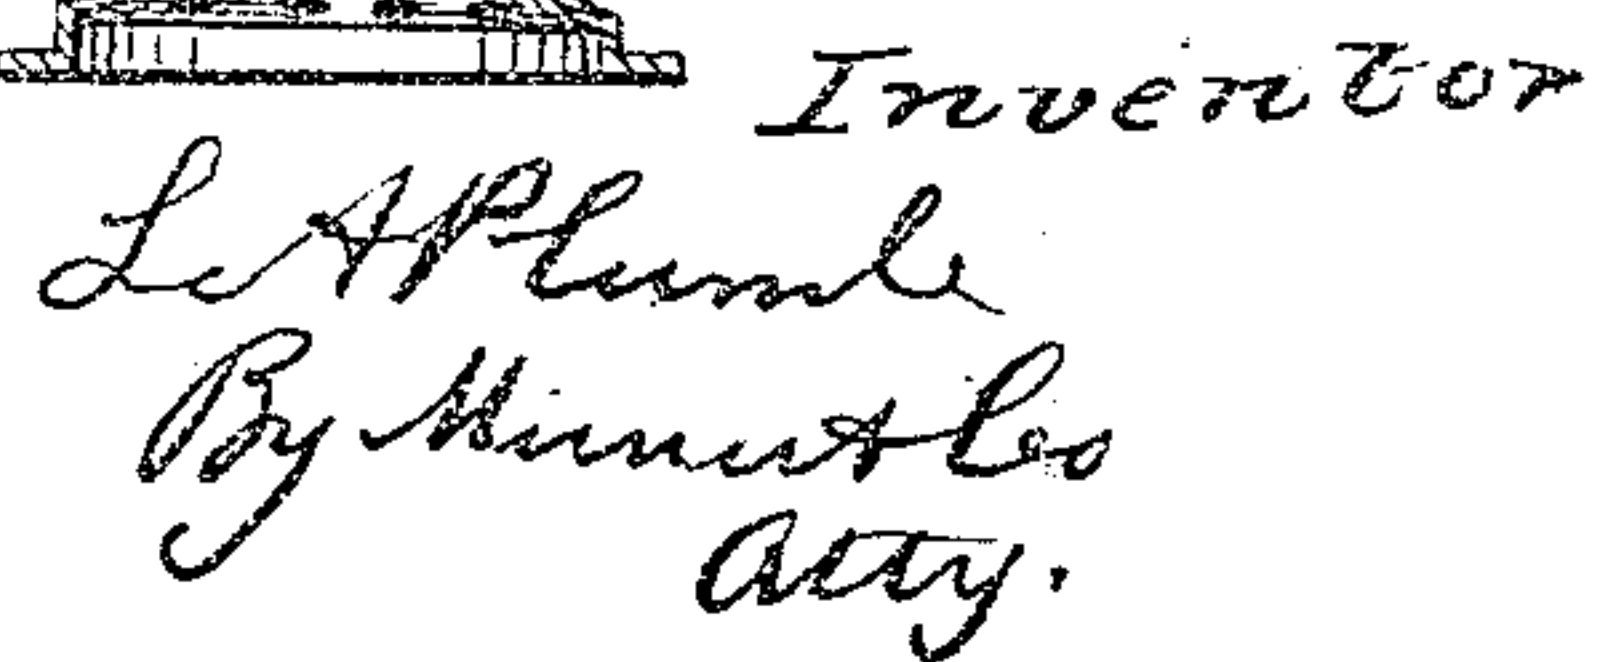 Inventor
Le A Plumb
By Munn & Co
Atty.